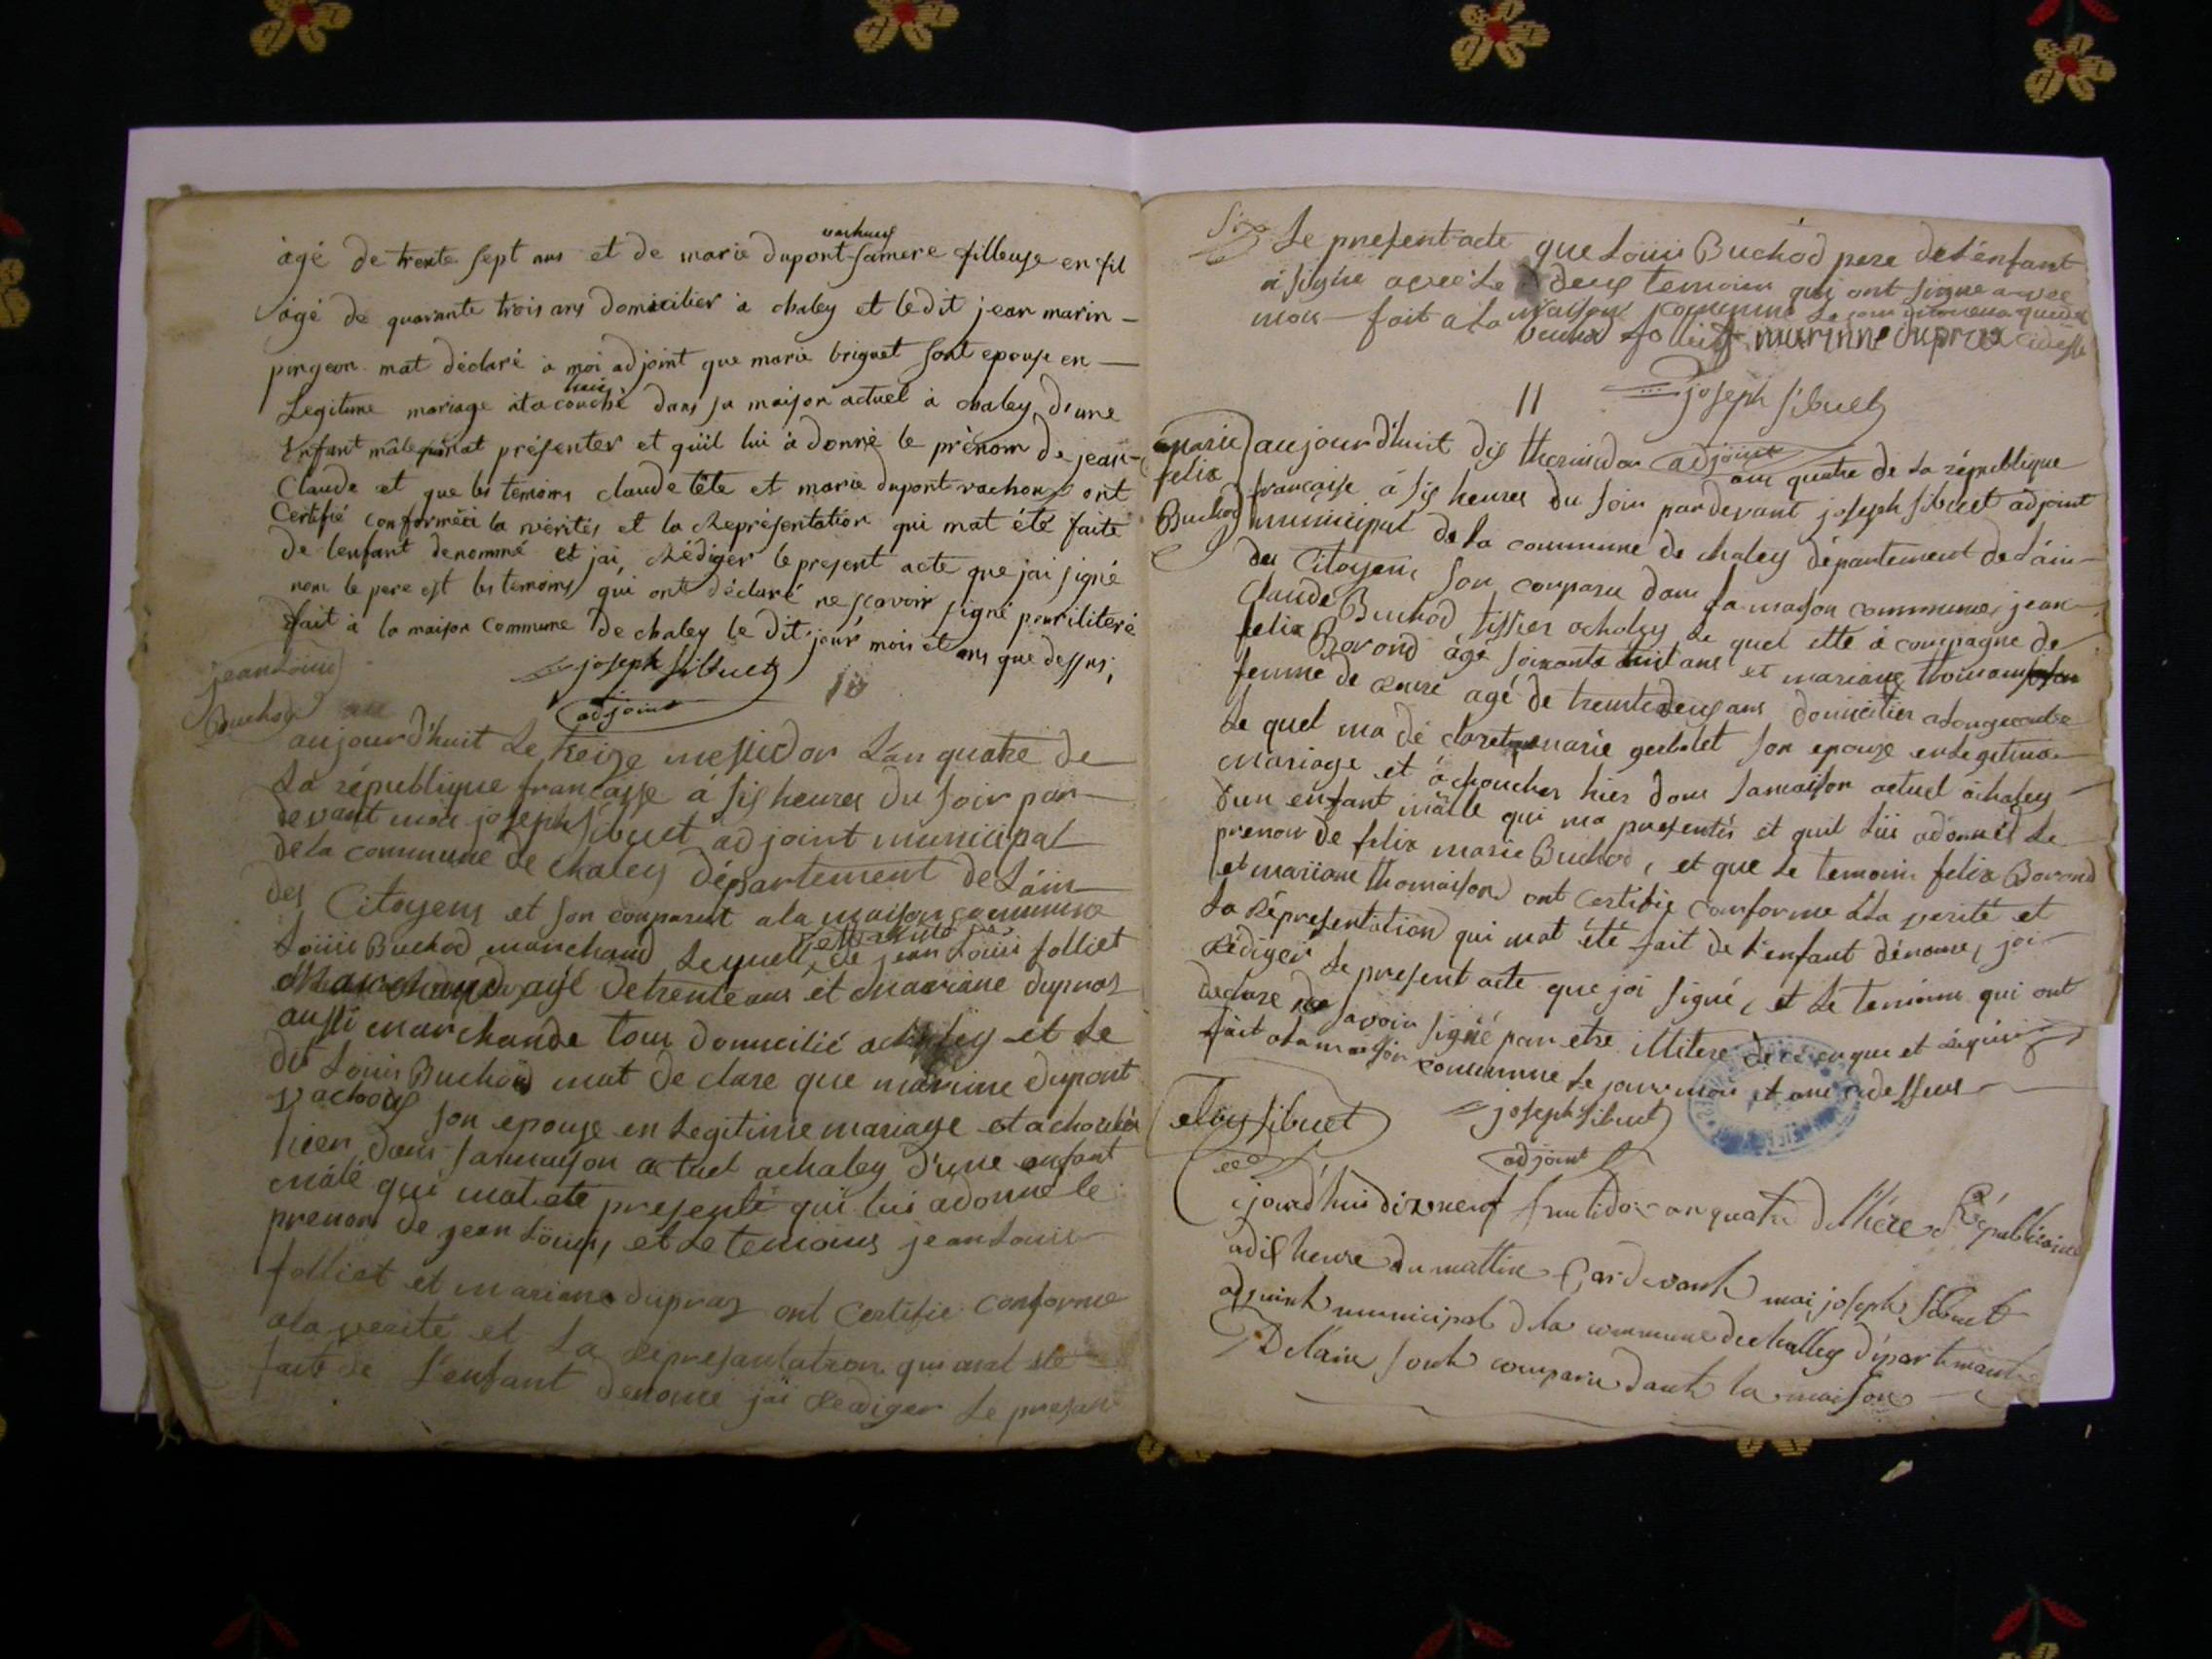 vachoux
âgé de trente sept ans et de marie dupont samere filleuse en fil
âgé de quarante trois ans domicilier à chaley et ledit jean marin
pingeon mat déclaré à moi adjoint que marie briguet sont epouse en
hier
Legitime mariage at acouché dans sa maison actuel à chaley d'une
Enfant mâle mat présenter et quïl lui à donné le prénom de jean
Claude et que les temoins claude tête et marie dupont vachoux ont
Certifié conforme a la vérités et la Représentation qui mat été faite
de lenfant denommé et jai, Rédiger le present acte que jai signé
non le pere est les temoins qui ont déclaré ne scavoir signé pour iliteré
fait à la maison Commune de chaley le dit jour mois et ans que dessus,
joseph Sibuet
adjoint
10
jean Louis
Buchod
aujourd'huit Le treize messidor Lan quatre de
La république francaisse à six heures du soir par
devant moi joseph Sibuet adjoint municipal
de La commune de chaley département de L'ain
des Citoyens et son comparut a la maison commune
Louis Buchod marchand Lequel de jean Louis folliet
marchand agé de trente ans et mariane dupraz
aussi marchande tous domicilié a chaley et Le
dit Louis Buchod mat declare que mariane dupont
vachoux son epouse en Legitime mariage at achouchée
hier dans sa maison actuel a chaley d'une enfant
mâle qui mat été presenté qui lui a donné le
prenom de jean Louis, et Le temoins jean Louis
folliet et mariane dupraz ont Certifie conforme
a la verite et La Representation qui mat été
faite de L'enfant denomé jai Rediger Le present
Le present acte que Louis Buchod pere de L'enfant
a signe avec Le deux temoins qui ont signe avec
moi fait a La maison commune
buchod folliet marianne dupraz
joseph Sibuet
adjoint
11
marie
felix
Buchod
aujourd'huit dix thermidor an quatre de La république
francaise à six heures du soir pardevant joseph Sibuet adjoint
municipal de La commune de chaley département de L'ain
des Citoyens son comparu dans La maison commune, jean
Claude Buchod tissier a chaley Le quel ette à compagne de
felix Borond âgé soixante huit ans et mariane thomasson
femme de agé de trente deux ans domicilier a
Le quel ma déclaret marie son epouse en Legitime
mariage et a choucher hier dans sa maison actuel à chaley
d'un enfant mâlle qui ma presentés et quil Lui a donnét Le
prenom de felix marie Buchod, et que Le temoin felix Borond
et mariane thomasson ont certifie conforme à La verité et
La Représentation qui mat été fait de L'enfant dénomé, jai
Rédiger Le present acte que jai signé, et Le temoins qui ont
declare ne savoir signé par etre illitere de ce enquis et requis
fait a La maison commune Le jour mois et ans cidessus
eloy Sibuet
joseph Sibuet
adjoint
cejourd'hui dixneuf fructidor an quatre de l'hére Républicaine
a dix heure du mattin Pardevant moi joseph Sibuet
adjoint municipal de la commune de challey département
De lain sont comparu dant la maison